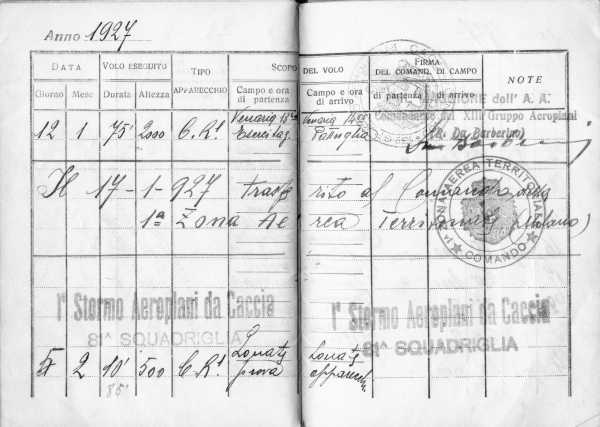 Anno 1927
DATA VOLO ESEGUITO TIPO APPARECCHIO SCOPO DEL VOLO FIRMA DEL COMAND. DI CAMPO NOTE
Giorno Mese Durata Altezza Campo e ora di partenza Campo e ora di arrivo di partenza di arrivo
12 1 75' 2000 C.R1. Venaria Venaria
Pattuglia
dell'A. A.
del XIII Gruppo Aeroplani
Il 17-1-927 trasferito al Comando della
1ª Zona Aerea Territoriale (Milano)
ZONA AEREA TERRITORIALE
COMANDO
1° Stormo Aeroplani da Caccia 1° Stormo Aeroplani da Caccia
81ᴬ SQUADRIGLIA 81ᴬ SQUADRIGLIA
2 10' 500 C.R1. Lonate Lonate
prova apparecch.
85'